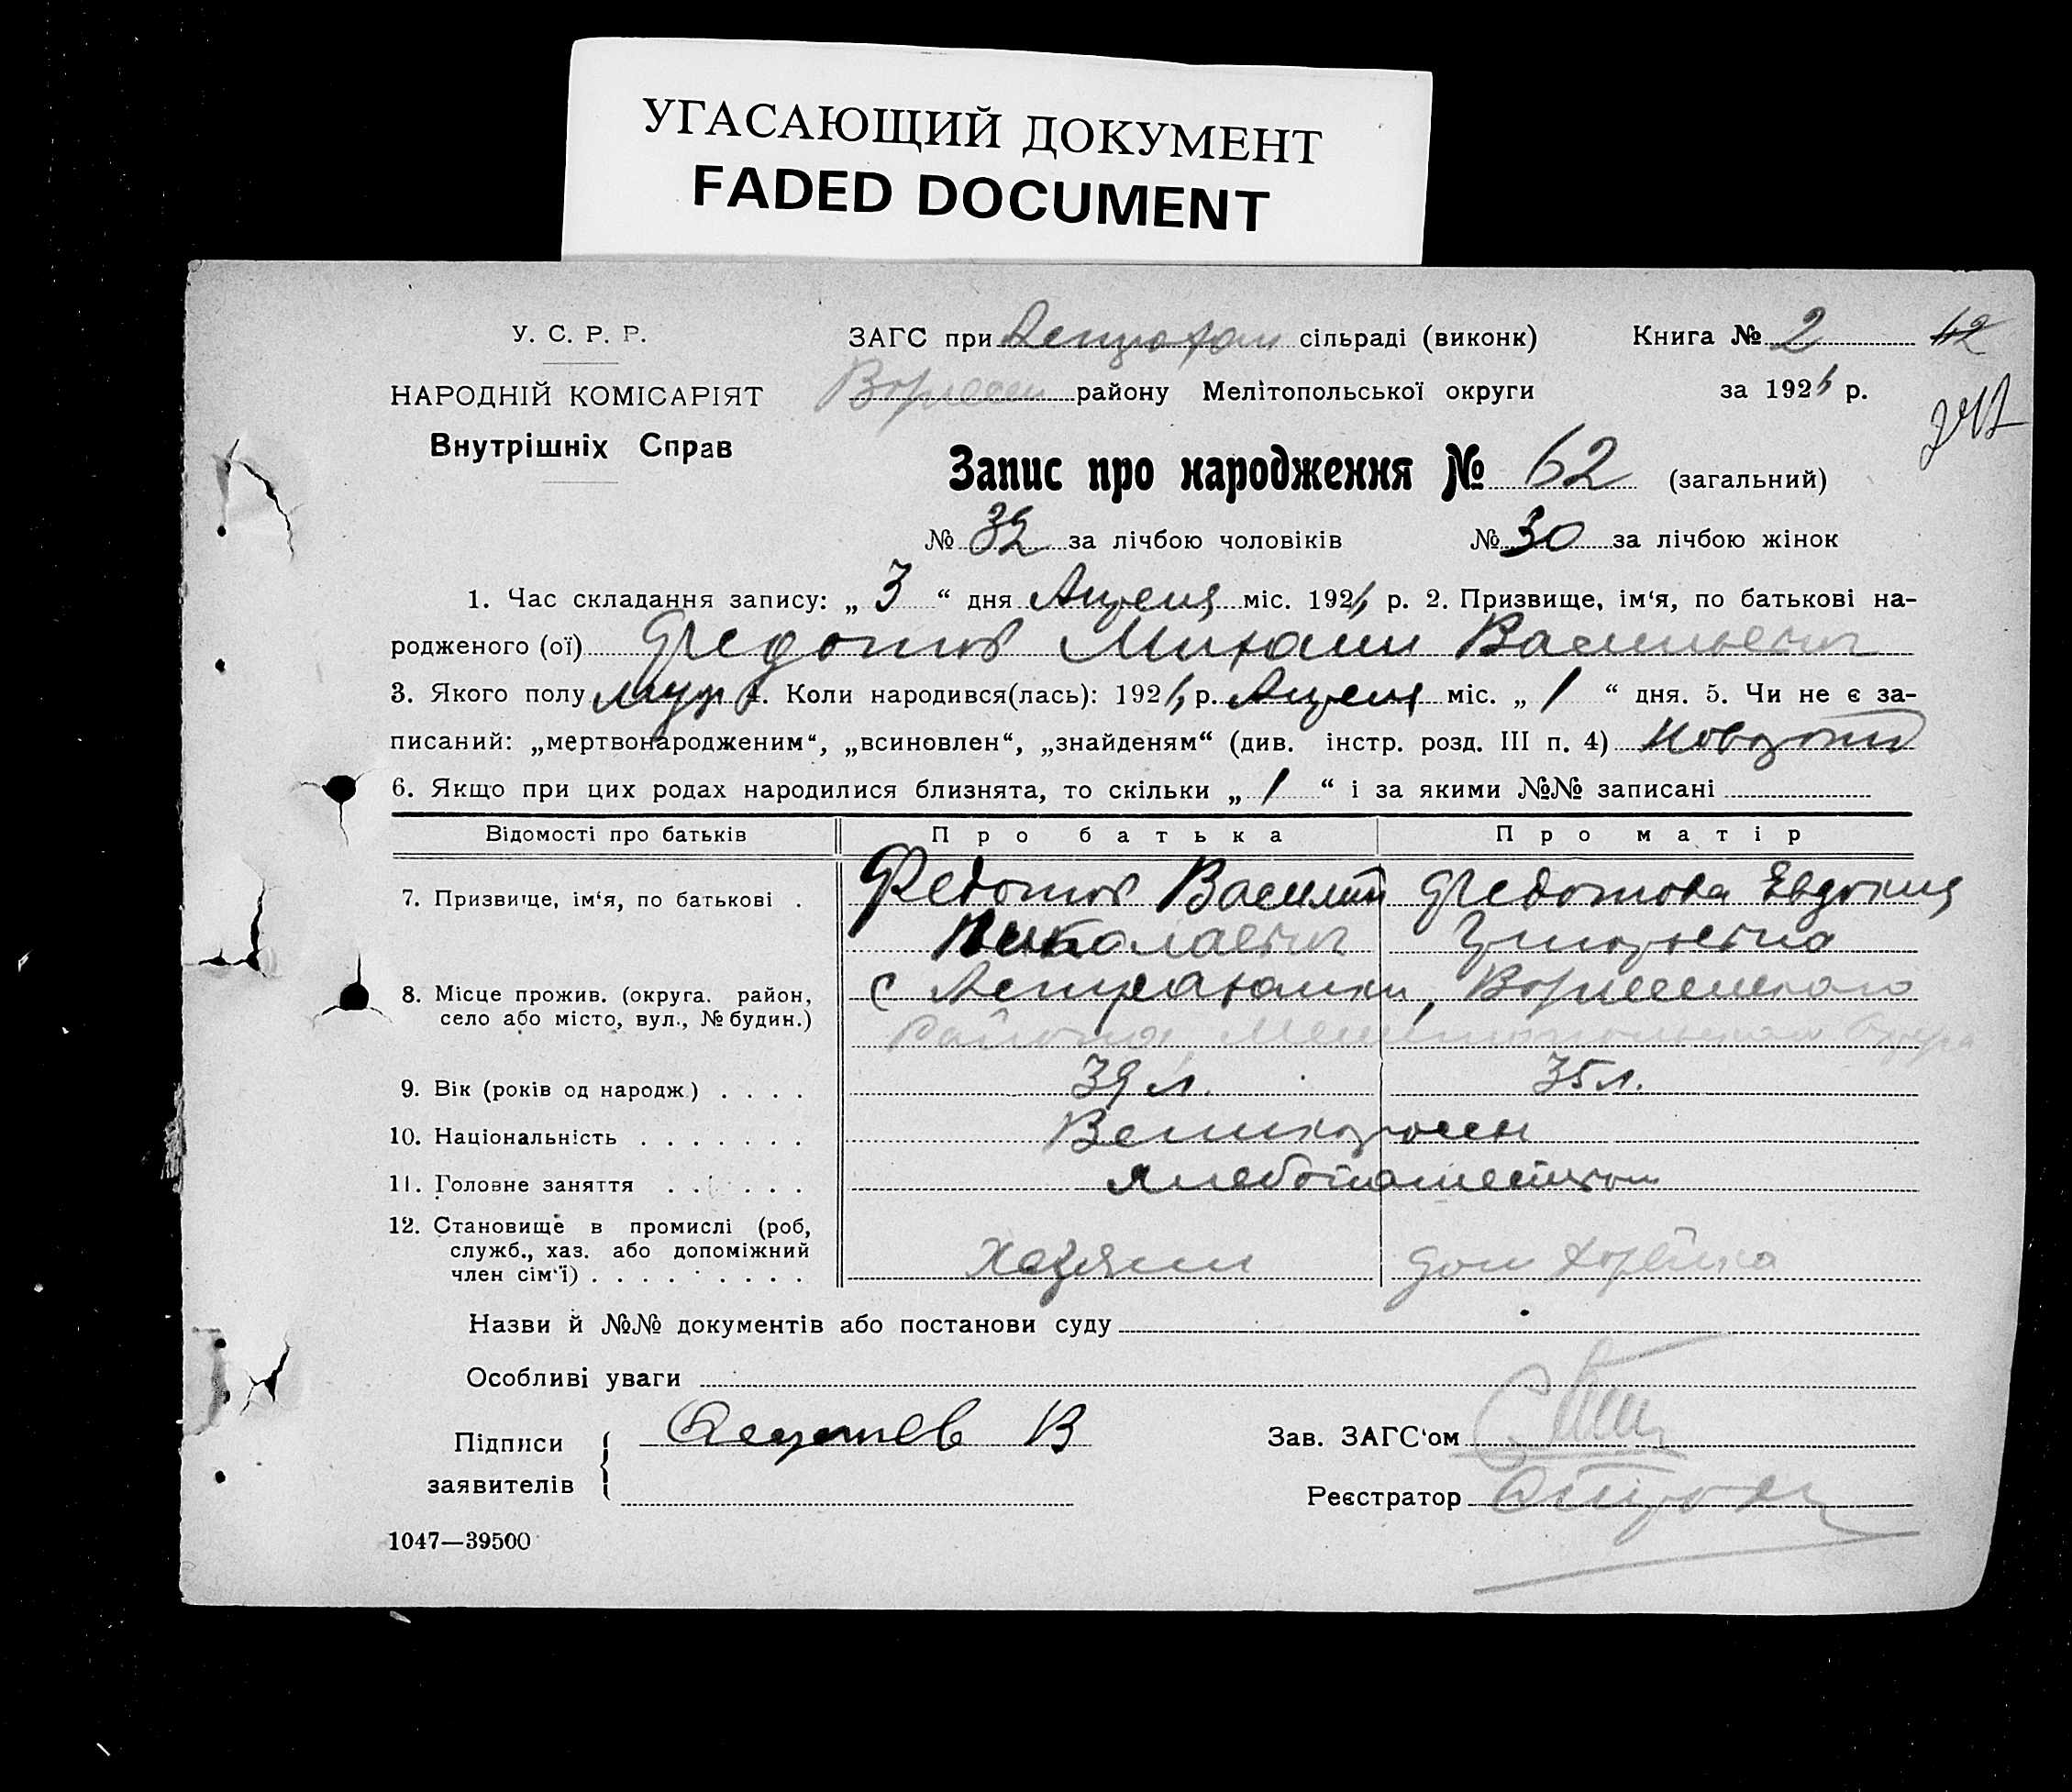 УГАСАЮЩИЙ ДОКУМЕНТ
FADED DOCUMENT
У. С. Р. Р.
НАРОДНІЙ КОМІСАРІЯТ
Внутрішніх Справ
ЗАГС при Астрахан сільраді (виконк)
району Мелітопольської округи
Книга № 2
за 1926 р.
Запис про народження № 62 (загальний)
№ 32 за лічбою чоловіків № 30 за лічбою жінок
1. Час складання запису: „ 3 “ дня Апреля міс. 1926 р. 2. Призвище, ім‘я, по батькові на-
родженого (ої) Федотов Михаил Васильевич
3. Якого полу муж 4. Коли народився(лась): 1926 р. Апреля міс. „ 1 “ дня. 5. Чи не є за-
писаний: „мертвонародженим“, „всиновлен“, „знайденям“ (див. інстр. розд. III п. 4)
6. Якщо при цих родах народилися близнята, то скільки „ 1 “ і за якими №№ записані
Відомості про батьків Про батька Про матір
7. Призвище, ім‘я, по батькові . Федотов Василий Федотова Евдокия
Николаевич Григорьевна
8. Місце прожив. (округа. район,
село або місто, вул., № будин.)
с Астраханки,
района, Мелитопольского Округа
9. Вік (років од народж.) . . . . 39 л. 35 л.
10. Національність . . . . . . . Великоросси
11. Головне заняття . . . . . . Хлебопашеством
12. Становище в промислі (роб,
служб., хаз. або допоміжний
член сім‘ї) . . . . . . . . .
Хозяин дом хозяйка
Назви й №№ документів або постанови суду
Особливі уваги
Підписи
заявителів
В
Зав. ЗАГС‘ом
Реєстратор
1047—39500